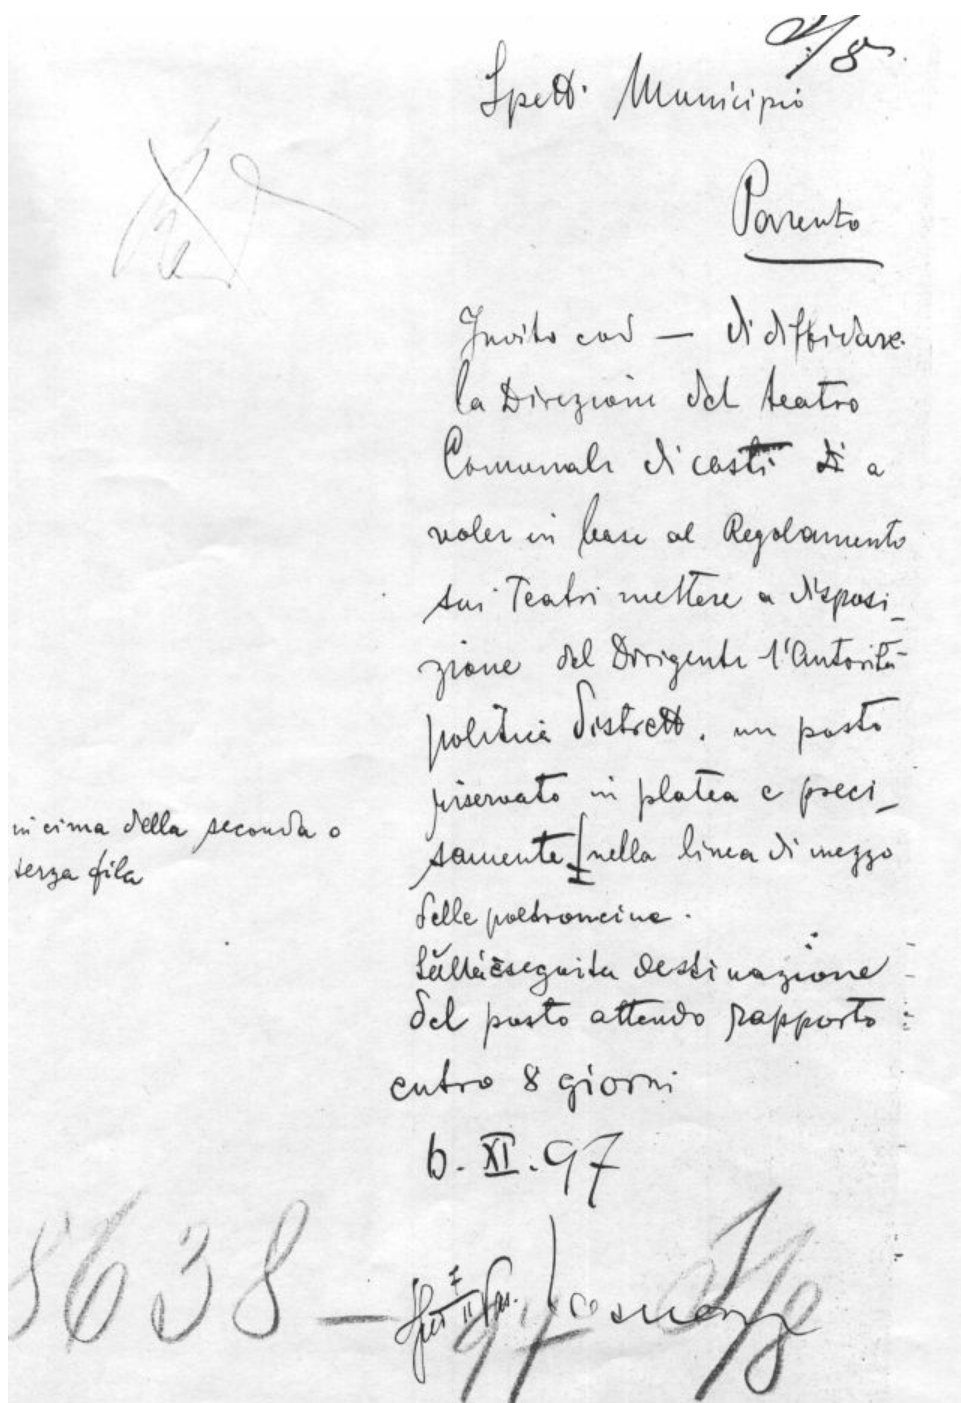 Spett. Municipio
Parento
Invito cod — di diffidare
la Direzione del teatro
Comunale di costì a
voler in base al Regolamento
sui Teatri mettere a disposi-
zione del Dirigente l'Autorità
politica distrett. un posto
riservato in platea e preci-
samente nella linea di mezzo
in cima della seconda o
terza fila
delle poltroncine.
Sull'eseguita destinazione
del posto attendo rapporto
entro 8 giorni
6. XI. 97
8638 —